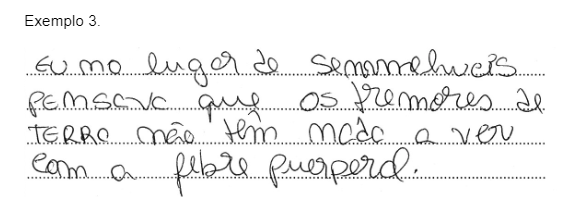 Exemplo 3.
Eu no lugar de Semmmelweis
pensava que os tremores de
TERRA não têm nada a ver
com a febre puerperal.